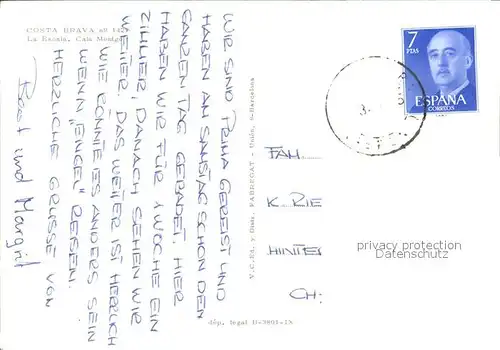 COSTA BRAVA
La Escala. Cala Montgó
WIR SIND PRIMA GEREIST UND
HABEN AM SAMSTAG SCHON DEN
GANZEN TAG GEBADET. HIER
HABEN WIR FÜR 1 WOCHE EIN
ZIMMER, DANACH SEHEN WIR
WEITER. DAS WETTER IST HERRLICH
WIE KÖNNTE ES ANDERS SEIN
WENN "ENGEL" REISEN.
HERZLICHE GRÜSSE VON
und Margrit
V.C.Ed. y Dis. FABREGAT - Unión, 8-Barcelona
dép. legal B-3801-IX
7
PTAS
ESPAÑA
CORREOS
FAM.
K. RIE
HINTER
CH.
privacy protection
Datenschutz